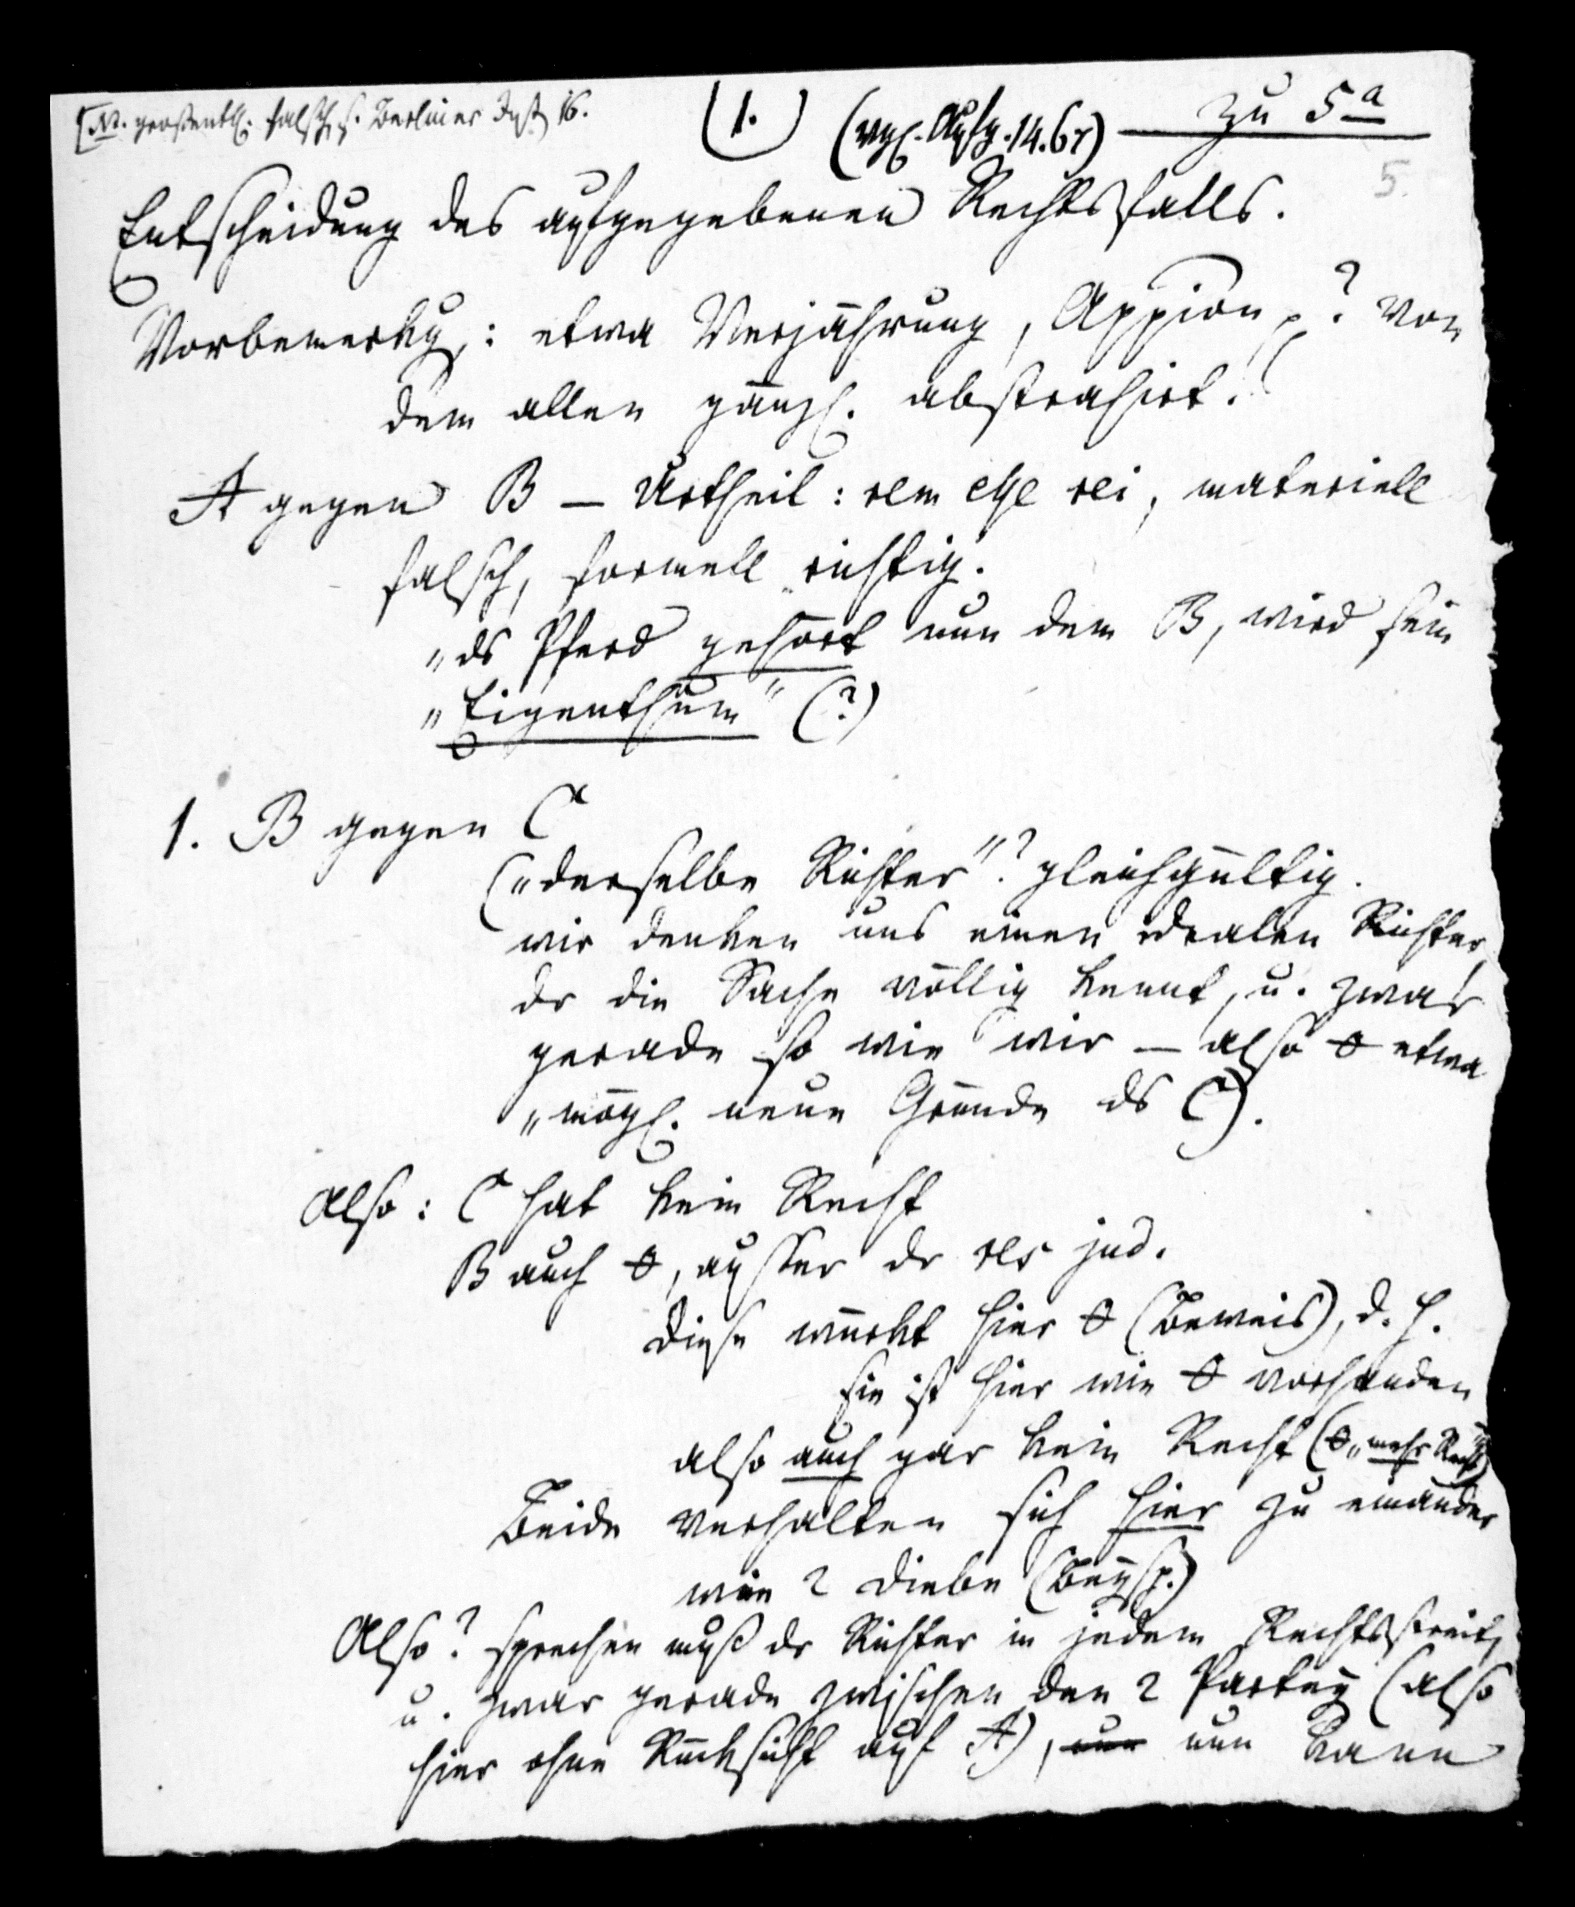 [NB. großentl. falsch, s. Berliner Inst. 16.
(1.) (vgl. Aufg. 14. 67) zu 5a
5
Entscheidung des aufgegebenen Rechtsfalls.
Vorbemerkg.: etwa Verjährung, Appion p.? Von
dem allen gänzl. abstrahirt.
A gegen B – Urtheil: rem esse rei, materiell
falsch, formell richtig.
„ds Pferd gehört nun dem B, wird sein
„Eigenthum" (?)
1. B gegen C
(„derselbe Richter"? gleichgültig.
wir denken uns einen idealen Richter,
dr die Sache völlig kennt, u. zwar
gerade so wie wir – also 0 etwa
„mögl. neue Gründe ds C).
Also: C hat kein Recht
B auch 0, ausser dr res jud.
diese würkt hier 0 (Beweis), d. h.
sie ist hier wie 0 vorhanden
also auch gar kein Recht (0 „mehr Recht")
Beide verhalten sich hier zu einander
wie 2 Diebe (Beysp.)
Also? sprechen muß dr Richter in jedem Rechtsstreit,
u. zwar gerade zwischen den 2 Parteÿ (also
hier ohne Rücksicht auf A), nun kann